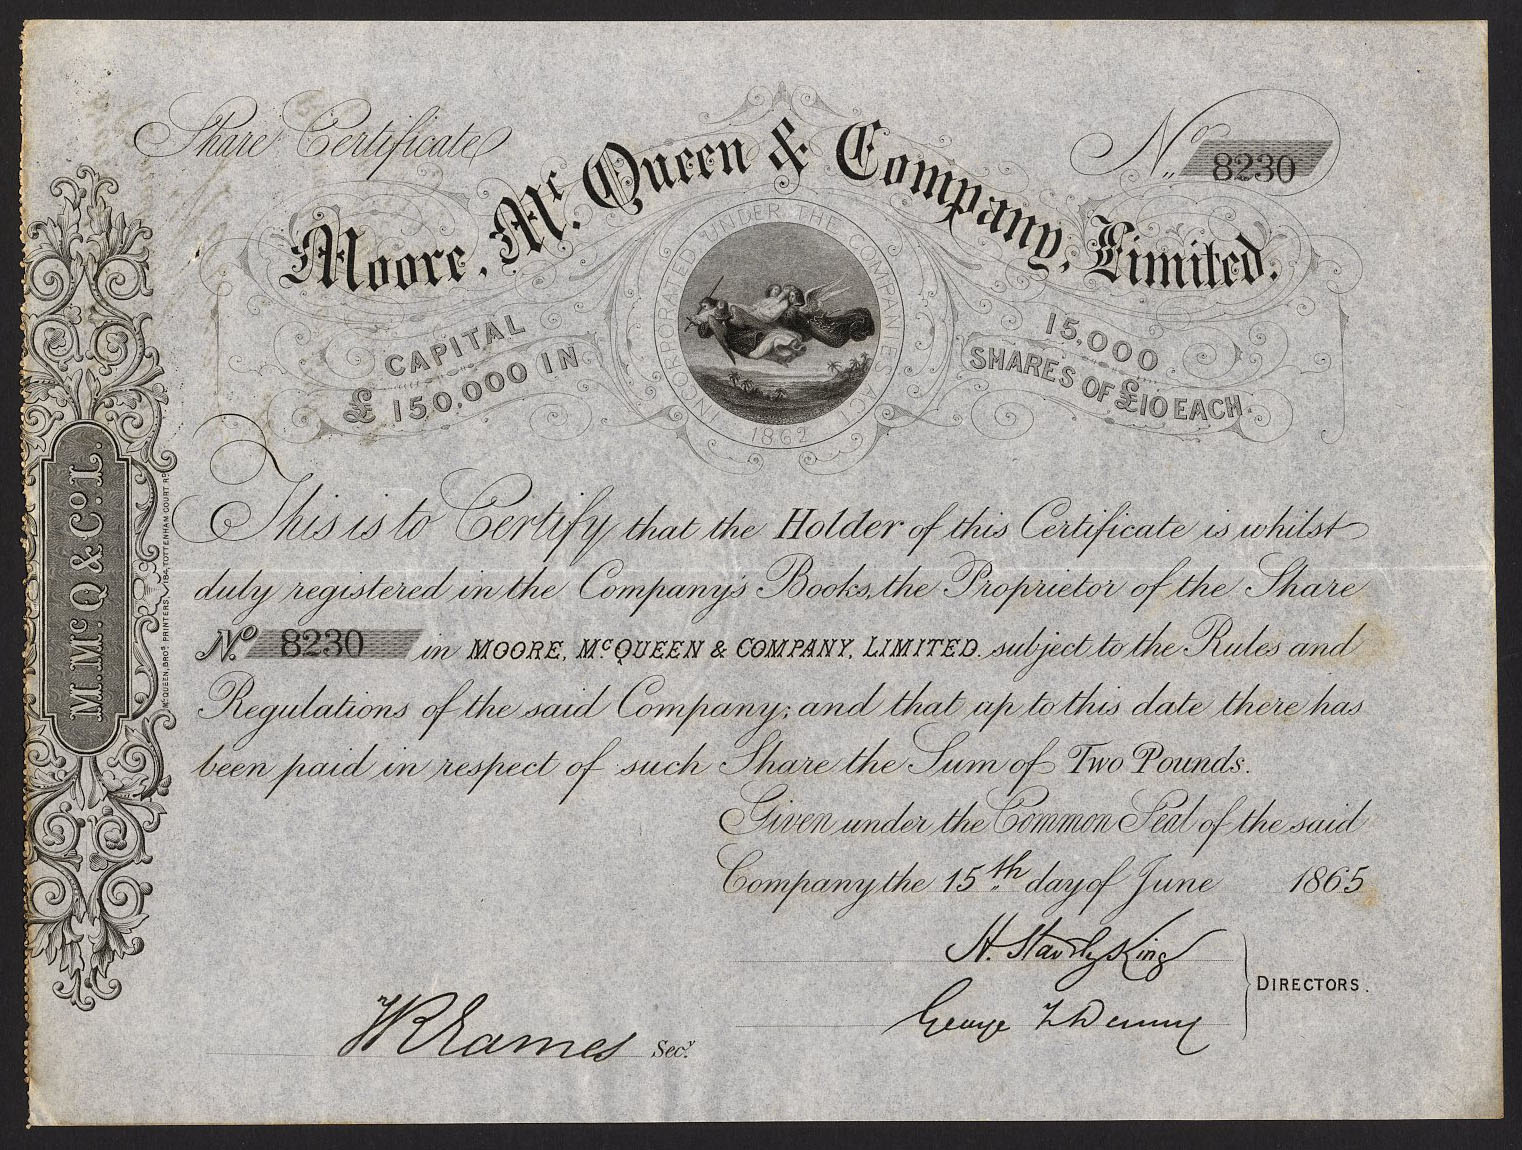 Share Certificate
No. 8230
Moore, Mc. Queen & Company, Limited.
INCORPORATED UNDER THE COMPANIES ACT
1862
CAPITAL
£ 150,000 IN
15,000
SHARES OF £10 EACH.
M. McQ & Co. L.
McQUEEN, BROs. PRINTERS, 184, TOTTENHAM COURT RD.
This is to Certify that the Holder of this Certificate is whilst
duly registered in the Company's Books, the Proprietor of the Share
No. 8230 in MOORE, McQUEEN & COMPANY, LIMITED. subject to the Rules and
Regulations of the said Company; and that up to this date there has
been paid in respect of such Share the Sum of Two Pounds.
Given under the Common Seal of the said
Company the 15th day of June 1865
H. King
George Denny
DIRECTORS.
Eames Secy.